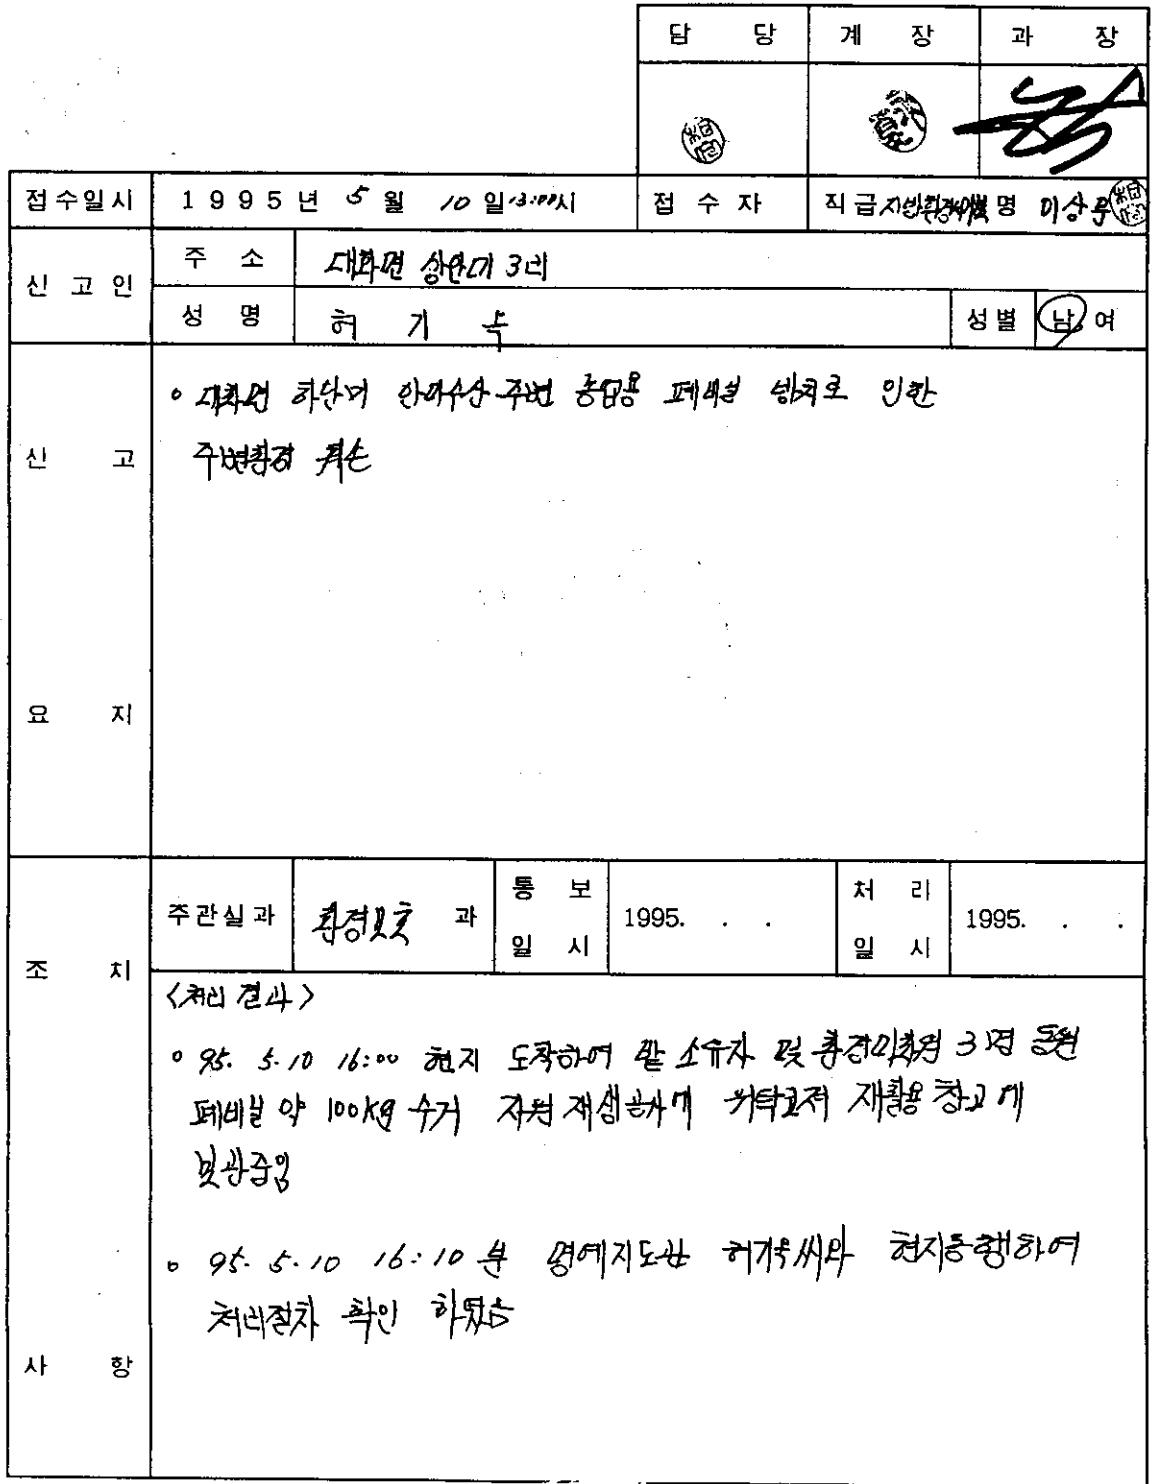 담 당 계 장 과 장
접수일시 1995년 5월 10일 13:00시 접 수 자 직급 지방환경 명 이상
신 고 인 주 소 대화면 상안미 3리
성 명 허 기 욱 성별 남 여
신 고 요 지
° 대화면 하안미 주변 농업용 폐비닐 방치로 인한
주변환경 훼손
조 치 사 항
주관실과 환경보호 과 통 보 일 시 1995. . . 처 리 일 시 1995. . .
<처리 결과>
° 95. 5.10 16:00 현지 도착하여 밭 소유자 및 환경미화원 3명 동원
폐비닐 약 100kg 수거 자원재생공사에 위탁코저 재활용 창고에
보관중임
° 95. 5. 10 16:10분 명예지도관 허기욱씨와 현지동행하여
처리절차 확인 하였음